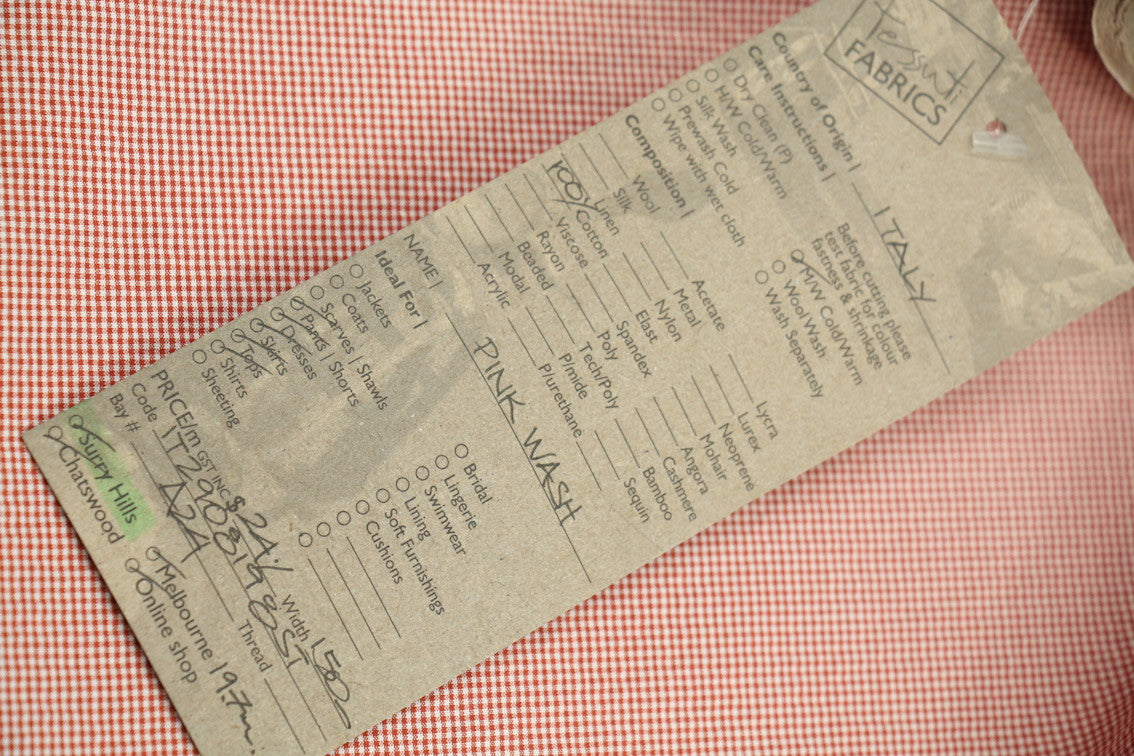 Tessuti
FABRICS
Country of Origin | ITALY
Care Instructions |
Before cutting please
test fabric for colour
fastness & shrinkage
Dry Clean (P)
H/W Cold/Warm
Silk Wash
Prewash Cold
Wipe with wet cloth
M/W Cold/Warm
Wool Wash
Wash Separately
Composition |
Wool
Silk
Linen
100% Cotton
Viscose
Rayon
Beaded
Modal
Acrylic
Acetate
Metal
Nylon
Elast
Spandex
Poly
Tech/Poly
P/mide
P/urethane
Lycra
Lurex
Neoprene
Mohair
Angora
Cashmere
Bamboo
Sequin
NAME | PINK WASH
Ideal For |
Jackets
Coats
Scarves | Shawls
Pants | Shorts
Dresses
Skirts
Tops
Shirts
Sheeting
Bridal
Lingerie
Swimwear
Lining
Soft Furnishings
Cushions
PRICE/m GST INC $24/ Width 150
Code IT2900819 8ST
Bay # A24 Thread
Surry Hills
Chatswood
Melbourne 19.7m.
Online shop